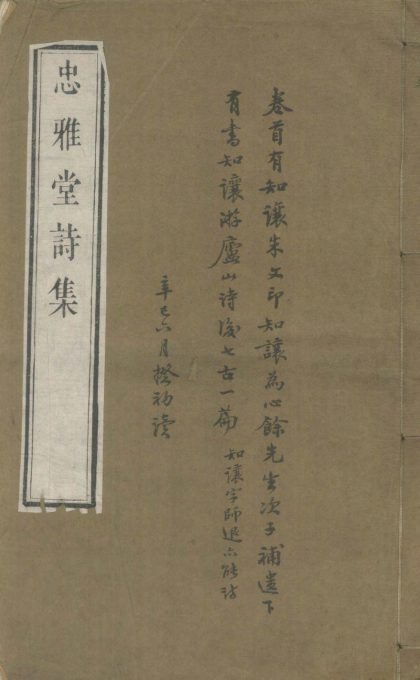 卷首有知讓朱文印知讓為心餘先生次子補遺下
有書知讓游廬山詩後七古一篇
知讓字師退亦能詩
辛巳六月揆初讀
忠雅堂詩集